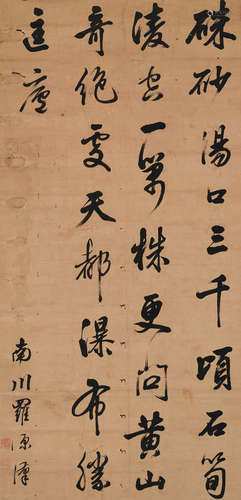 硃砂湯口三千頃石筍
凌空一萬株更問黃山
奇絶處天都瀑布勝
匡廬
南川羅源漢